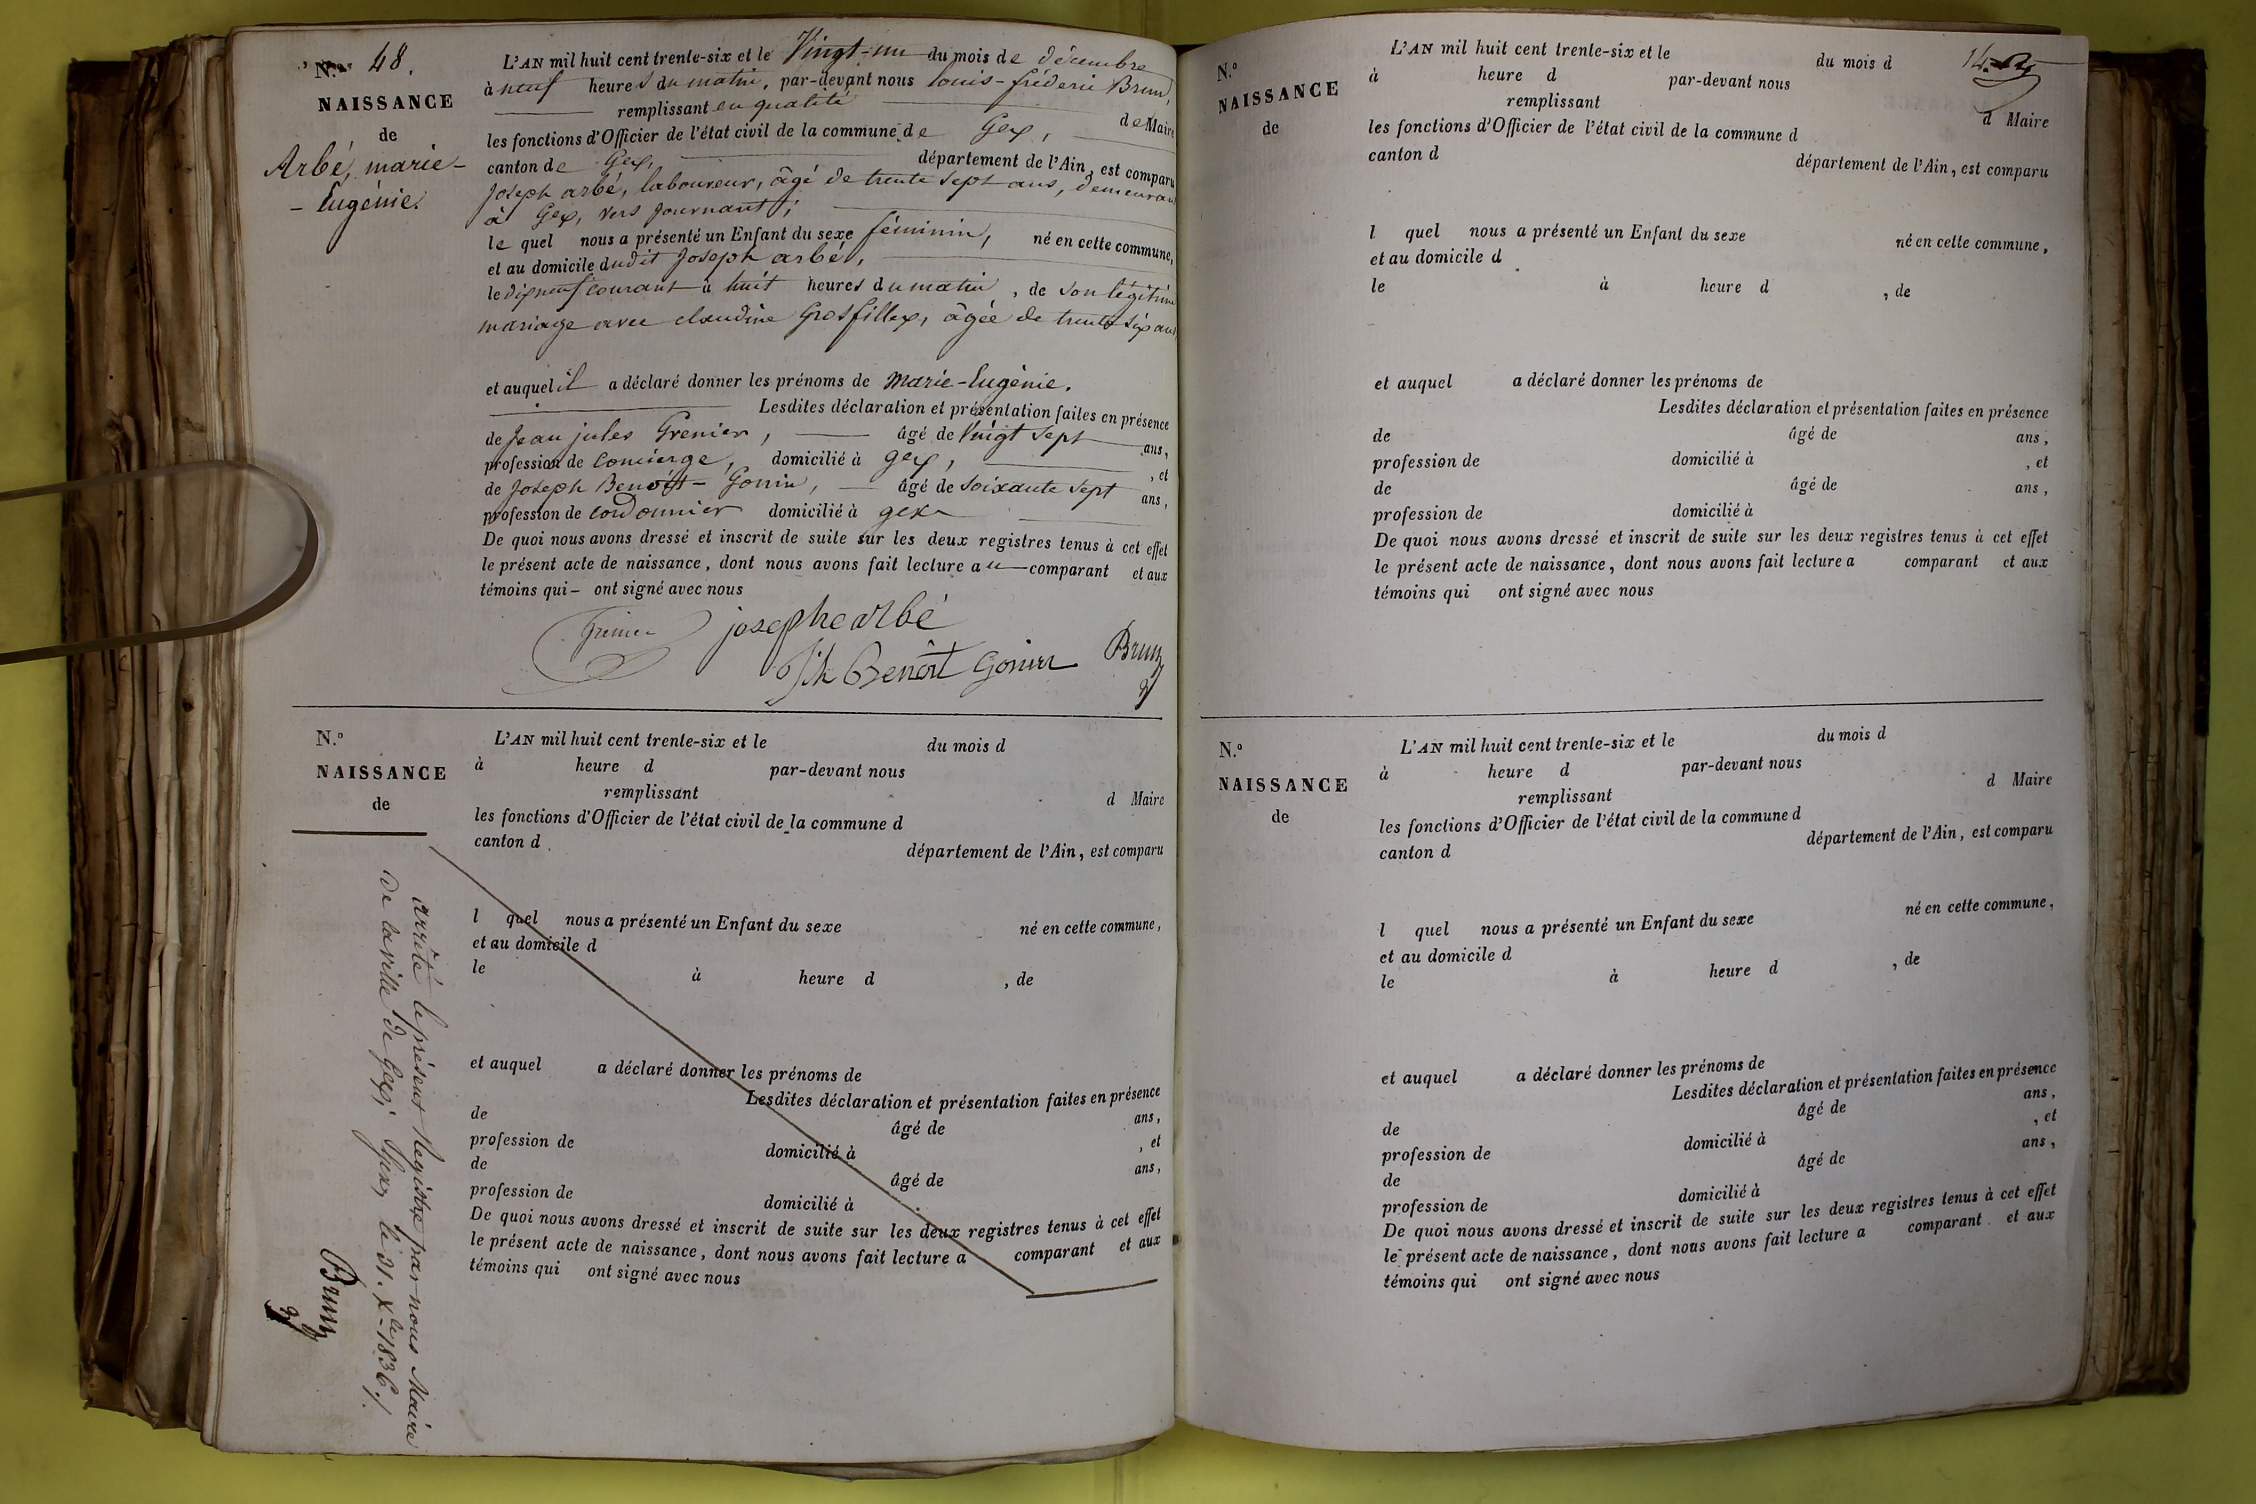 N.° 48.
NAISSANCE
de
Arbé, marie-
- Eugénie.
L'AN mil huit cent trente-six et le Vingt-un du mois de décembre
à neuf heures du matin, par-devant nous louis-fréderic Brun,
remplissant en qualité de Maire
les fonctions d'Officier de l'état civil de la commune de Gex,
canton de Gex, département de l'Ain, est comparu
Joseph arbé, laboureur, âgé de trente sept ans, demeurant
à Gex, vers Journant;
le quel nous a présenté un Enfant du sexe féminin, né en cette commune,
et au domicile dudit Joseph arbé,
le dixneuf courant à huit heures du matin, de son légitime
mariage avec claudine Grosfillex, âgée de trente six ans,
et auquel il a déclaré donner les prénoms de Marie-Eugénie.
Lesdites déclaration et présentation faites en présence
de Jean jules Grenier, âgé de Vingt sept ans,
profession de concierge, domicilié à gex, , et
de Joseph Benoit-Gonin, âgé de soixante sept ans,
profession de cordonnier domicilié à gex
De quoi nous avons dressé et inscrit de suite sur les deux registres tenus à cet effet
le présent acte de naissance, dont nous avons fait lecture au comparant et aux
témoins qui - ont signé avec nous
Grenier josephe arbé
Jph Benoit Gonin Brun
N.°
NAISSANCE
de
L'AN mil huit cent trente-six et le du mois d
à heure d par-devant nous
remplissant d Maire
les fonctions d'Officier de l'état civil de la commune d
canton d département de l'Ain, est comparu
l quel nous a présenté un Enfant du sexe né en cette commune,
et au domicile d
le à heure d , de
et auquel a déclaré donner les prénoms de
Lesdites déclaration et présentation faites en présence
de âgé de ans,
profession de domicilié à , et
de âgé de ans,
profession de domicilié à
De quoi nous avons dressé et inscrit de suite sur les deux registres tenus à cet effet
le présent acte de naissance, dont nous avons fait lecture a comparant et aux
témoins qui ont signé avec nous
arrêté le présent Registre par nous Maire
de la ville de Gex; Gex, le 31. Xbre 1836./.
Brun
14
N.°
NAISSANCE
de
L'AN mil huit cent trente-six et le du mois d
à heure d par-devant nous
remplissant d Maire
les fonctions d'Officier de l'état civil de la commune d
canton d département de l'Ain, est comparu
l quel nous a présenté un Enfant du sexe né en cette commune,
et au domicile d
le à heure d , de
et auquel a déclaré donner les prénoms de
Lesdites déclaration et présentation faites en présence
de âgé de ans,
profession de domicilié à , et
de âgé de ans,
profession de domicilié à
De quoi nous avons dressé et inscrit de suite sur les deux registres tenus à cet effet
le présent acte de naissance, dont nous avons fait lecture a comparant et aux
témoins qui ont signé avec nous
N.°
NAISSANCE
de
L'AN mil huit cent trente-six et le du mois d
à heure d par-devant nous
remplissant d Maire
les fonctions d'Officier de l'état civil de la commune d
canton d département de l'Ain, est comparu
l quel nous a présenté un Enfant du sexe né en cette commune,
et au domicile d
le à heure d , de
et auquel a déclaré donner les prénoms de
Lesdites déclaration et présentation faites en présence
de âgé de ans,
profession de domicilié à , et
de âgé de ans,
profession de domicilié à
De quoi nous avons dressé et inscrit de suite sur les deux registres tenus à cet effet
le présent acte de naissance, dont nous avons fait lecture a comparant et aux
témoins qui ont signé avec nous